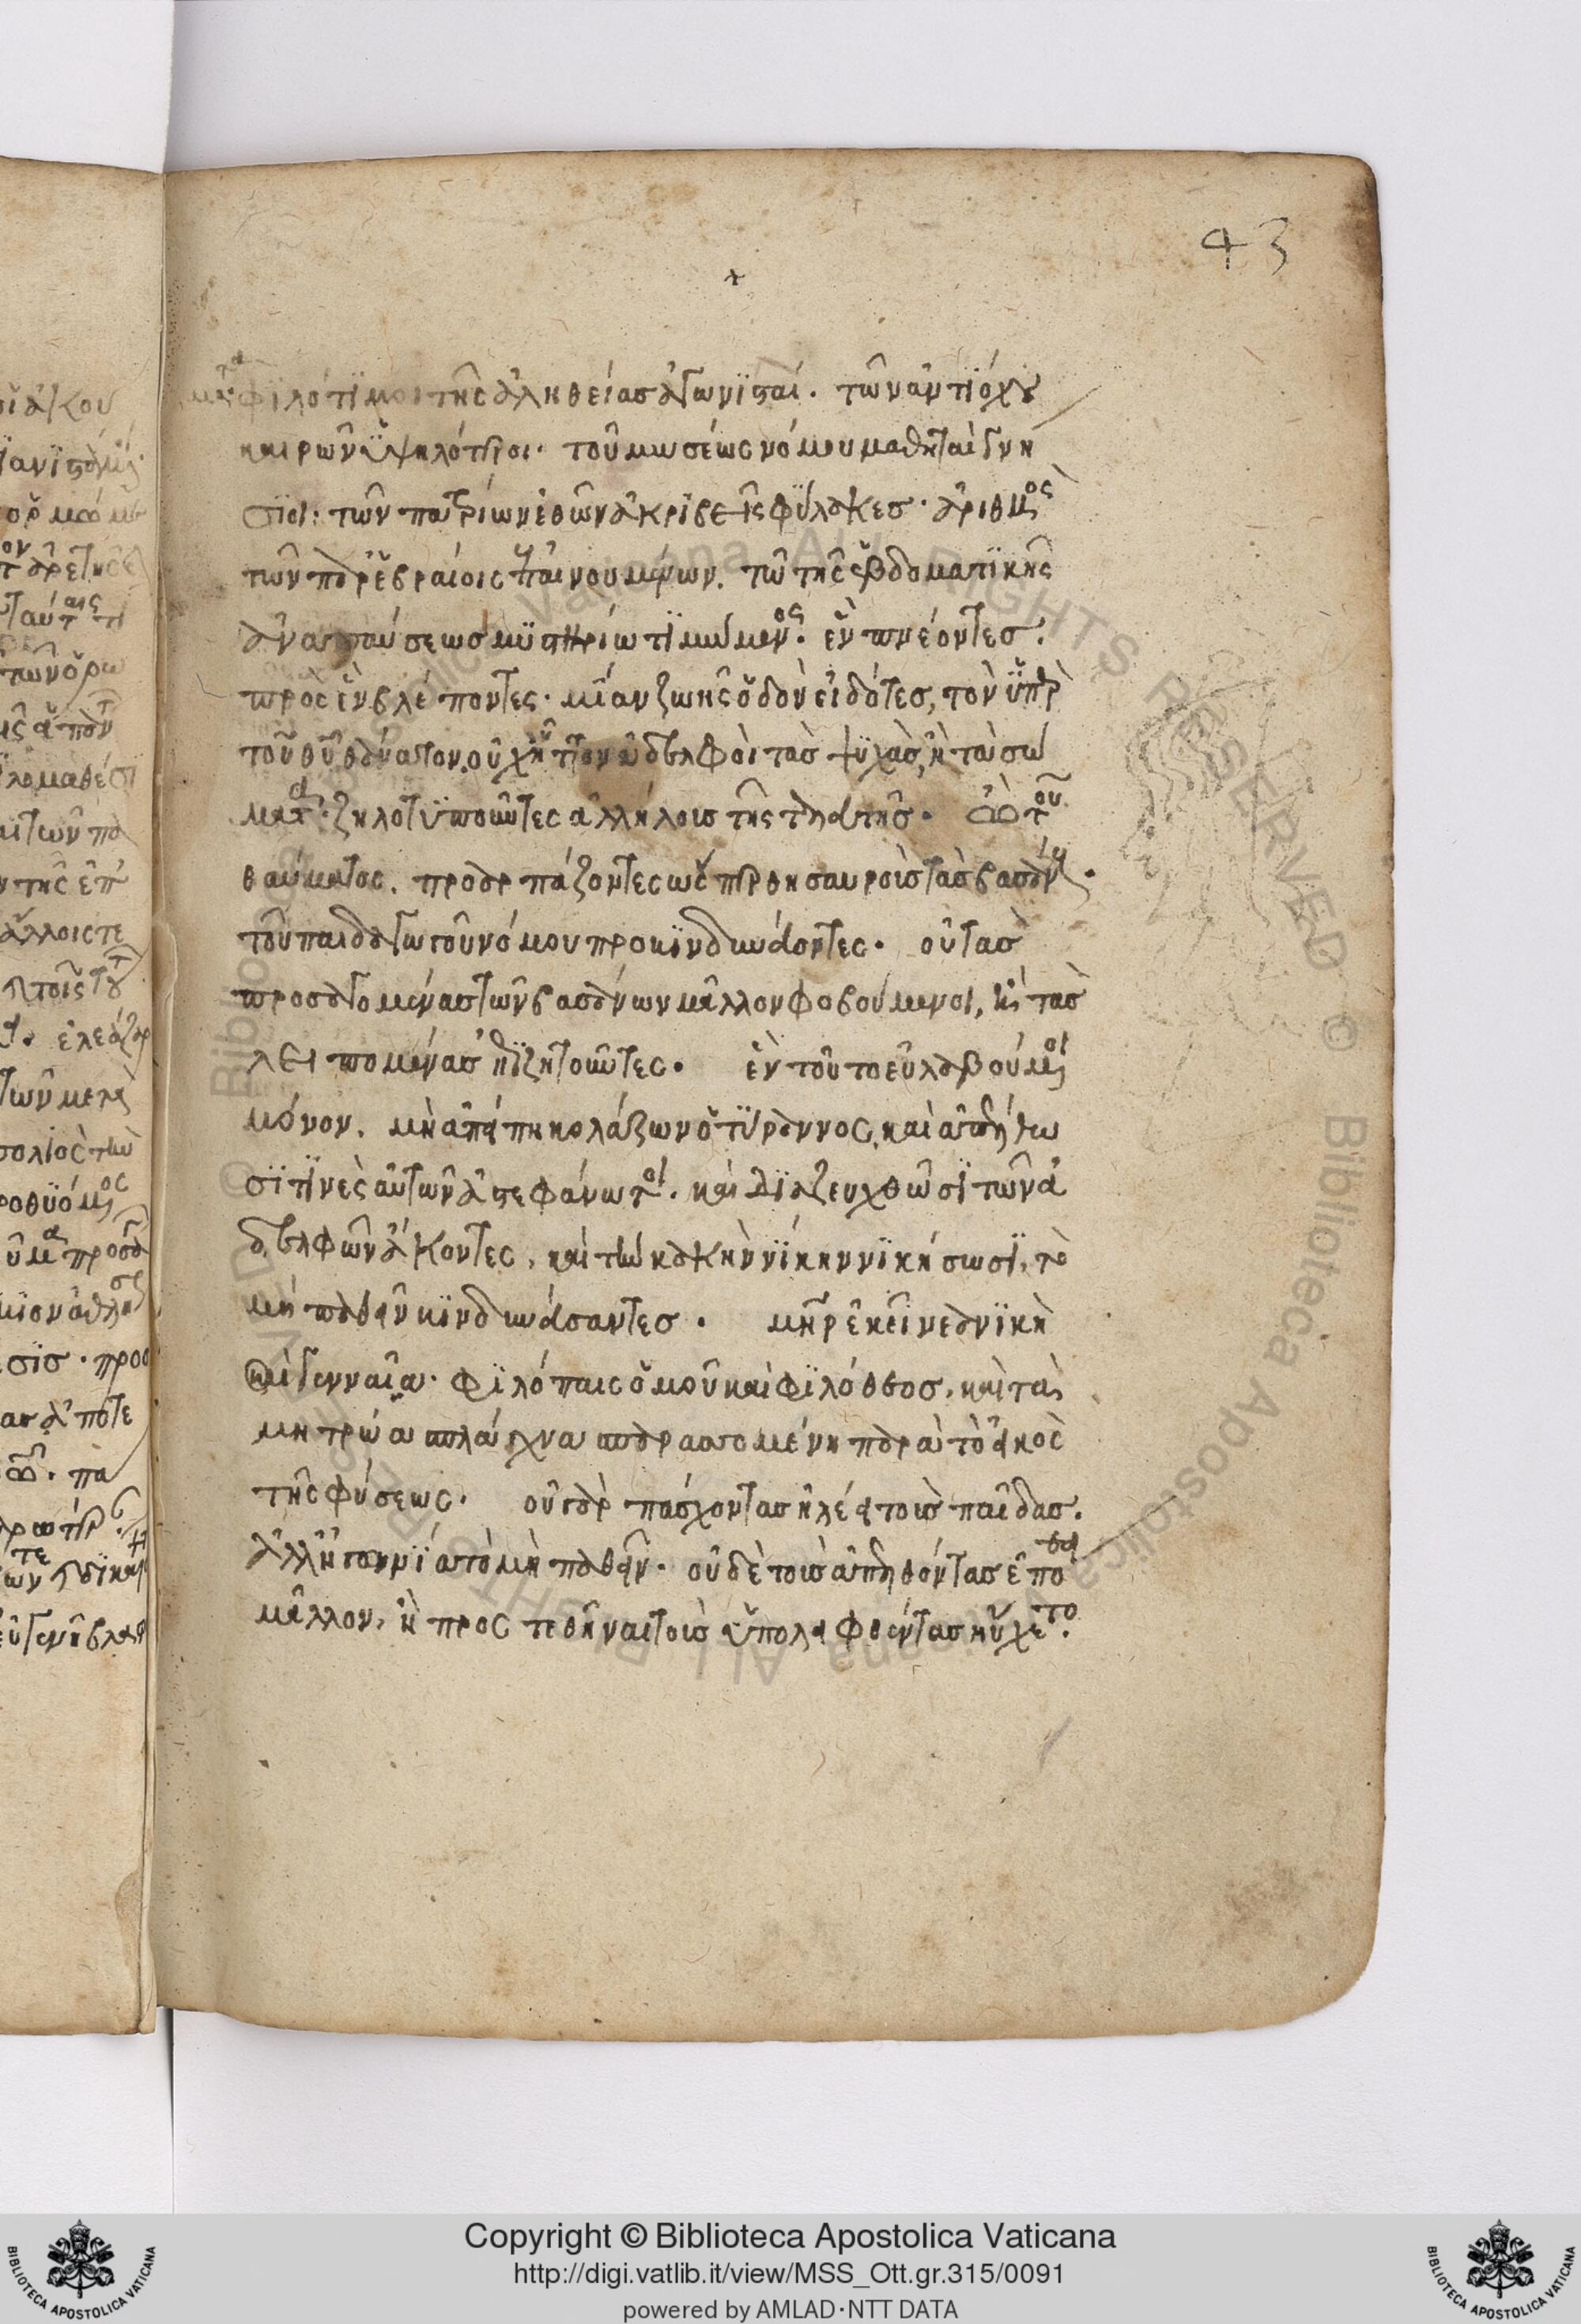 43
φϊλότϊμοι τῆς ἀληθείας ἀγωνϊσταί. τῶν ἀντιόχου
καιρῶν ὑψηλότεροι. τοῦ μωσέως νόμου μαθηταὶ γνή
σϊοι. τῶν πατρίων ἐθῶν ἀκριβεῖς φύλακες. ἀριθμὸς
τῶν παρ' ἑβραίοις ἐπαινουμένων. τῶ τῆς ἑβδοματϊκῆς
ἀναπαύσεως μυστηρίω τϊμώμενος. ἓν πνέοντες.
πρὸς ἓν βλέποντες. μίαν ζωῆς ὁδὸν εἰδότες, τὸν ὑπὲρ
τοῦ θῦ θάνατον. οὐχ ἧττον ἀδελφοὶ τὰς ψυχὰς, ἢ τὰ σώ
ματα. ζηλοτυποῦντες ἀλλήλοις τῆς τελευτῆς. ὢ τοῦ
θαύματος. προαρπάζοντες ὥσπερ θησαυροὺς τὰς βασάνους.
τοῦ παιδαγωγοῦ νόμου προκϊνδυνεύοντες. οὐ τὰς
προσαγομένας τῶν βασάνων μᾶλλον φοβούμενοι, ἢ τὰς
λειπομένας ἐπϊζητοῦντες. ἓν τοῦτο εὐλαβούμενοι
μόνον. μὴ ἀπείπη κολάζων ὁ τύραννος. καὶ ἀπέλθω
σϊ τϊνὲς αὐτῶν ἀστεφάνωτοι. καὶ δϊαζευχθῶσϊ τῶν ἀ
δελφῶν ἄκοντες. καὶ τὴν κακὴν νίκην νϊκήσωσϊ, τὸ
μὴ παθεῖν κϊνδυνεύσαντες. μήτηρ ἐκεῖ νεανϊκὴ
καὶ γενναία. φϊλόπαις ὁμοῦ καὶ φϊλόθεος. καὶ τὰ
μητρῶα σπλάγχνα σπαρασσομένη παρὰ τὸ εἰκὸς
τῆς φύσεως. οὐ γὰρ πάσχοντας ἠλέει τοὺς παῖδας.
ἀλλ' ἠγωνία τὸ μὴ παθεῖν. οὐδὲ τοὺς ἀπελθόντας ἐπόθει
μᾶλλον, ἢ προστεθῆναι τοὺς ὑπολειφθέντας ηὔχετο.
© Biblioteca Apostolica Vaticana ALL RIGHTS RESERVED
Copyright © Biblioteca Apostolica Vaticana
http://digi.vatlib.it/view/MSS_Ott.gr.315/0091
powered by AMLAD·NTT DATA
BIBLIOTECA APOSTOLICA VATICANA
BIBLIOTECA APOSTOLICA VATICANA